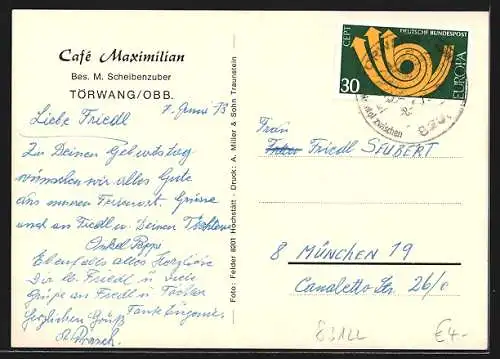 Café Maximilian
Bes. M. Scheibenzuber
TÖRWANG/OBB.
7. Juni 73
Liebe Friedl
Zu Deinen Geburtstag
wünschen wir alles Gute
aus unseren Ferienort. Grüsse
und an Friedl u. Deinen Töchtern
Onkel Beppi
Ebenfalls alles Herzliche
Dir lb. Friedl u. viele
Grüße an Friedl u. Töchter
Herzlichen Gruß Tante
Foto: Felder 8201 Höchstätt · Druck: A. Miller & Sohn Traunstein
CEPT
DEUTSCHE BUNDESPOST
EUROPA
30
zwischen
Frau
Friedl SEUBERT
8 MÜNCHEN 19
Canaletto Str. 26/0
83122
€4.-